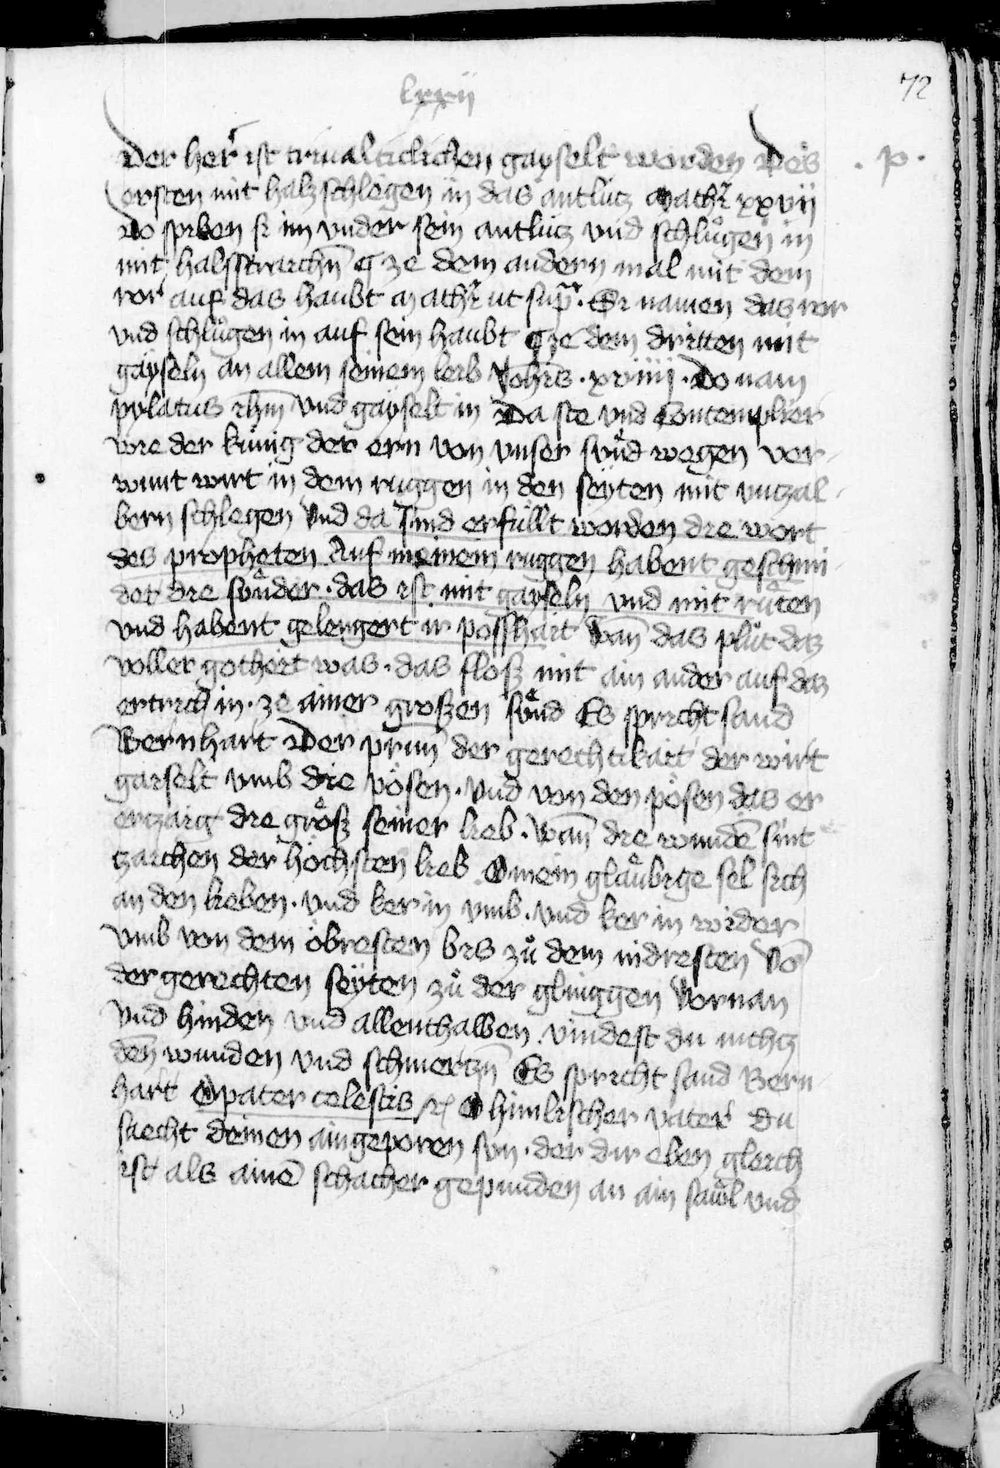 lxxii
72
Der her̄ ist trivalticlichen gayselt worden Des . p .
ersten mit halzschlegen in das antlücz Mathꝛ̄ xxvij
Do spiben si im vnder sein antlücz vnd schlůgen in
mit halsstraichn̄ ¶ ze dem andern mal mit dem
ror auf das haubt Mathꝛ̄ ut sup̄ᵃ. Si namen das ror
vnd schlůgen in auf sein haubt ¶ ze dem dritten mit
gayseln an allem seinem leib Joh̄is . xviiii . Do nam
pylatus ih̄m vnd gayselt in Da ste vnd Contemplier
wie der kúnig der ern von vnser sünd wegen ver-
wunt wirt in dem ruggen in den seyten mit vnzal-
bern schlegen Vnd da sind erfüllt worden die wort
des propheten Auf meinem ruggen habent geschmi-
det die sünder . das ist mit gayseln vnd mit růten
vnd habent gelengert ir posshait Wan̄ das plůt daz
voller gothait was . das floß mit ain ander auf daz
ertrich in . ze ainer großen sünd Es spricht sand
Bernhart Der prun̄ der gerechtikait der wirt
gaiselt vmb die pösen . vnd von den pösen das er
erzaig die größ seiner lieb . wan̄ die wundē sint
zaichen der höchsten lieb O mein glaübige sel sich
an den lieben . vnd ker in vmb . vnd ker in wider
vmb von dem obresten bis zů dem nidresten Vō
der gerechten seyten zů der glinggen Vornan
vnd hinden vnd allenthalben vindest du nichcz
den̄ wunden vnd schmerczn̄ Es spricht sand Bern-
hart O pater celestis ꝛc̄ O himlischer vater du
siecht deinen aingeporen sun . der dir eben gleich
ist als ainē schacher gepunden an ain saẅl vnd